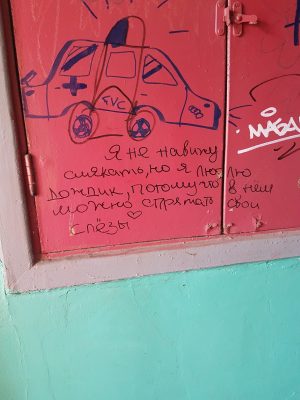 FVC
МАБА
Я не навижу
слякать, но я люблю
дождик, потому что в нём
можно спрятать свои
слёзы